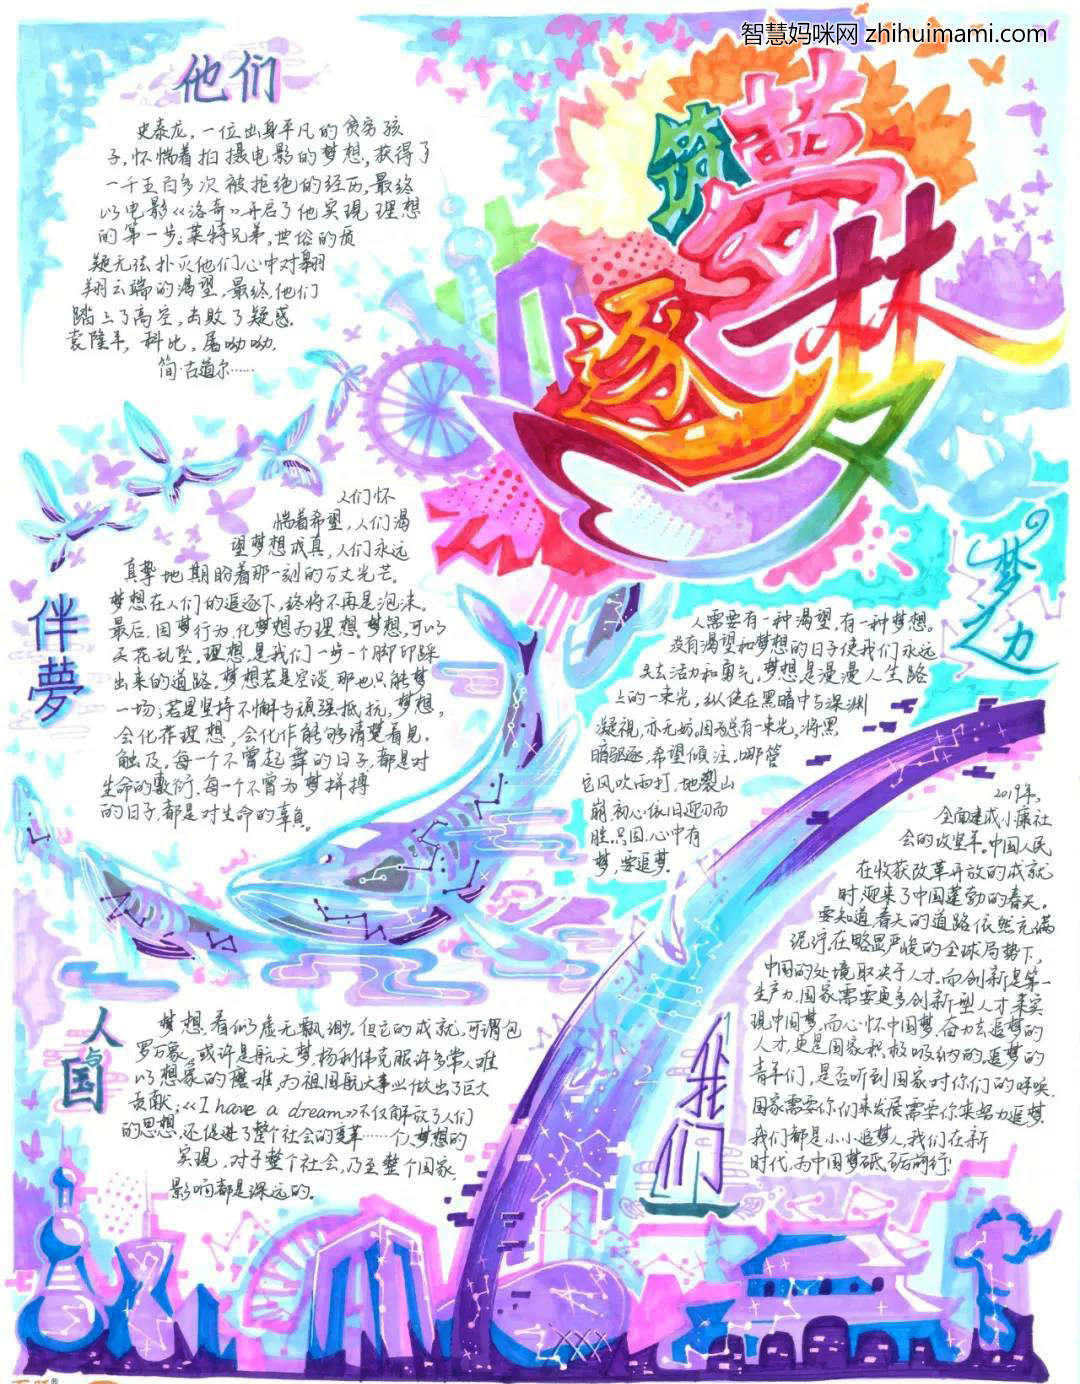 智慧妈咪网 zhihuimami.com
筑梦
逐
林
梦
他们
史泰龙,一位出身平凡的贫穷孩
子,怀惴着拍摄电影的梦想,获得了
一千五百多次被拒绝的经历,最终
以电影《洛奇》开启了他实现理想
的第一步。莱特兄弟,世俗的质
疑无法扑灭他们心中对翱
翔云端的渴望,最终,他们
踏上了高空,击败了疑惑.
袁隆平,科比,屠呦呦,
简·古道尔……
伴夢
人们怀
惴着希望,人们渴
望梦想成真,人们永远
真挚地期盼着那一刻的万丈光芒。
梦想在人们的追逐下,终将不再是泡沫。
最后,因梦行为,化梦想为理想。梦想,可以
天花乱坠,理想,是我们一步一个脚印踩
出来的道路。梦想若是空谈,那也只能梦
一场;若是坚持不懈与顽强抵抗,梦想,
会化作理想,会化作能够清楚看见,
触及。每一个不曾起舞的日子,都是对
生命的敷衍,每一个不曾为梦拼搏
的日子,都是对生命的辜负。
梦之力
人需要有一种渴望,有一种梦想。
没有渴望和梦想的日子使我们永远
失去活力和勇气,梦想是漫漫人生路
上的一束光,纵使在黑暗中与深渊
凝视,亦无妨。因为总有一束光,将黑
暗驱逐,希望倾注,哪管
它风吹雨打,地裂山
崩,初心依旧迎刃而
胜。只因,心中有
梦,要追梦.
2019年,
全面建成小康社
会的攻坚年。中国人民
在收获改革开放的成就
时,迎来了中国蓬勃的春天。
要知道,春天的道路依然充满
泥泞,在略显严峻的全球局势下,
中国的处境取决于人才。而创新是第一
生产力,国家需要更多创新型人才来实
现中国梦,而心怀中国梦,奋力去追梦的
人才,更是国家积极吸纳的。追梦的
青年们,是否听到国家对你们的呼唤,
国家需要你们来发展,需要你来努力追梦.
我们都是小小追梦人,我们在新
时代,为中国梦砥砺前行!
我们
人与国
梦想,看似虚无飘渺,但它的成就,可谓包
罗万象。或许是航天梦,杨利伟克服许多常人难
以想象的磨难,为祖国航天事业做出了巨大
贡献;《I have a dream》不仅解放了人们
的思想,还促进了整个社会的变革……个人梦想的
实现,对于整个社会,乃至整个国家,
影响都是深远的。